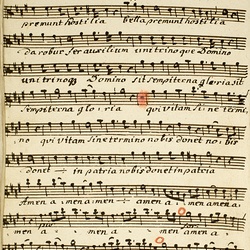 premunt hostilia bella premunt hostilia
da robur fer auxilium uni trinoque Domino
uni trinoq Domino sit sempiterna gloria sit
sempiterna gloria qui vitam sine termi,
no qui vitam sine termino nobis donet nobis
donet in patria nobis donet in patria
Amen a men a men amen a men amen a
men a men a men amen